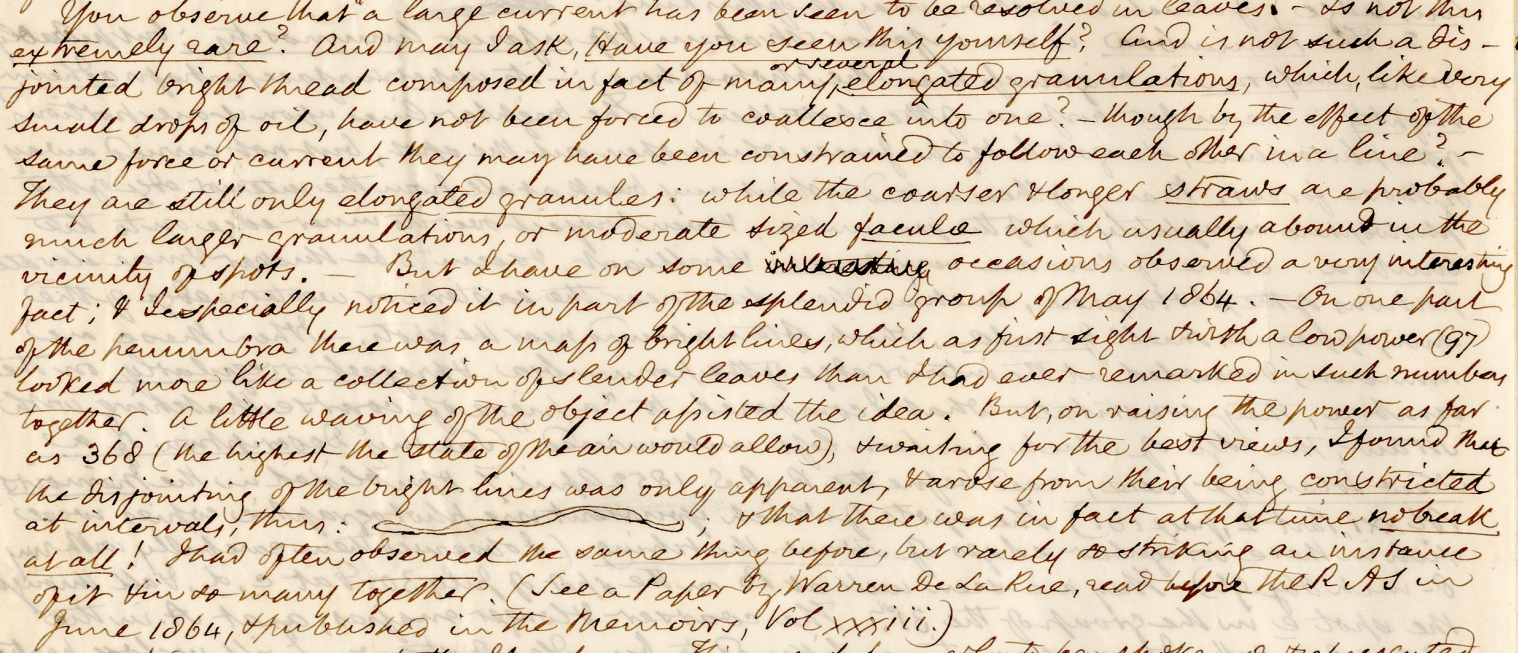 You observe that "a large current has been seen to be resolved in leaves. – Is not this
extremely rare? And may I ask, Have you seen this yourself? And is not such a dis-
or several
jointed bright thread composed in fact of many, elongated granulations, which, like very
small drops of oil, have not been forced to coallesce into one? – though by the effect of the
same force or current they may have been constrained to follow each other in a line? –
They are still only elongated granules: while the coarser & longer straws are probably
much larger granulations, or moderate sized faculæ which usually abound in the
vicinity of spots. – But I have on some occasions observed a very interesting
fact; & I especially noticed it in part of the splendid group of May 1864. – On one part
of the penumbra there was a mass of bright lines, which as first sight & with a low power (97)
looked more like a collection of slender leaves than I had ever remarked in such numbers
together. A little waving of the object assisted the idea. But, on raising the power as far
as 368 (the highest the state of the air would allow), & waiting for the best views, I found that
the disjointing of the bright lines was only apparent, & arose from their being constricted
at intervals, thus: ; & that there was in fact at that time no break
at all! I had often observed the same thing before, but rarely so striking an instance
of it & in so many together. (See a Paper by Warren De La Rue, read before the R A S in
June 1864, & published in the Memoirs, Vol xxxiii.)